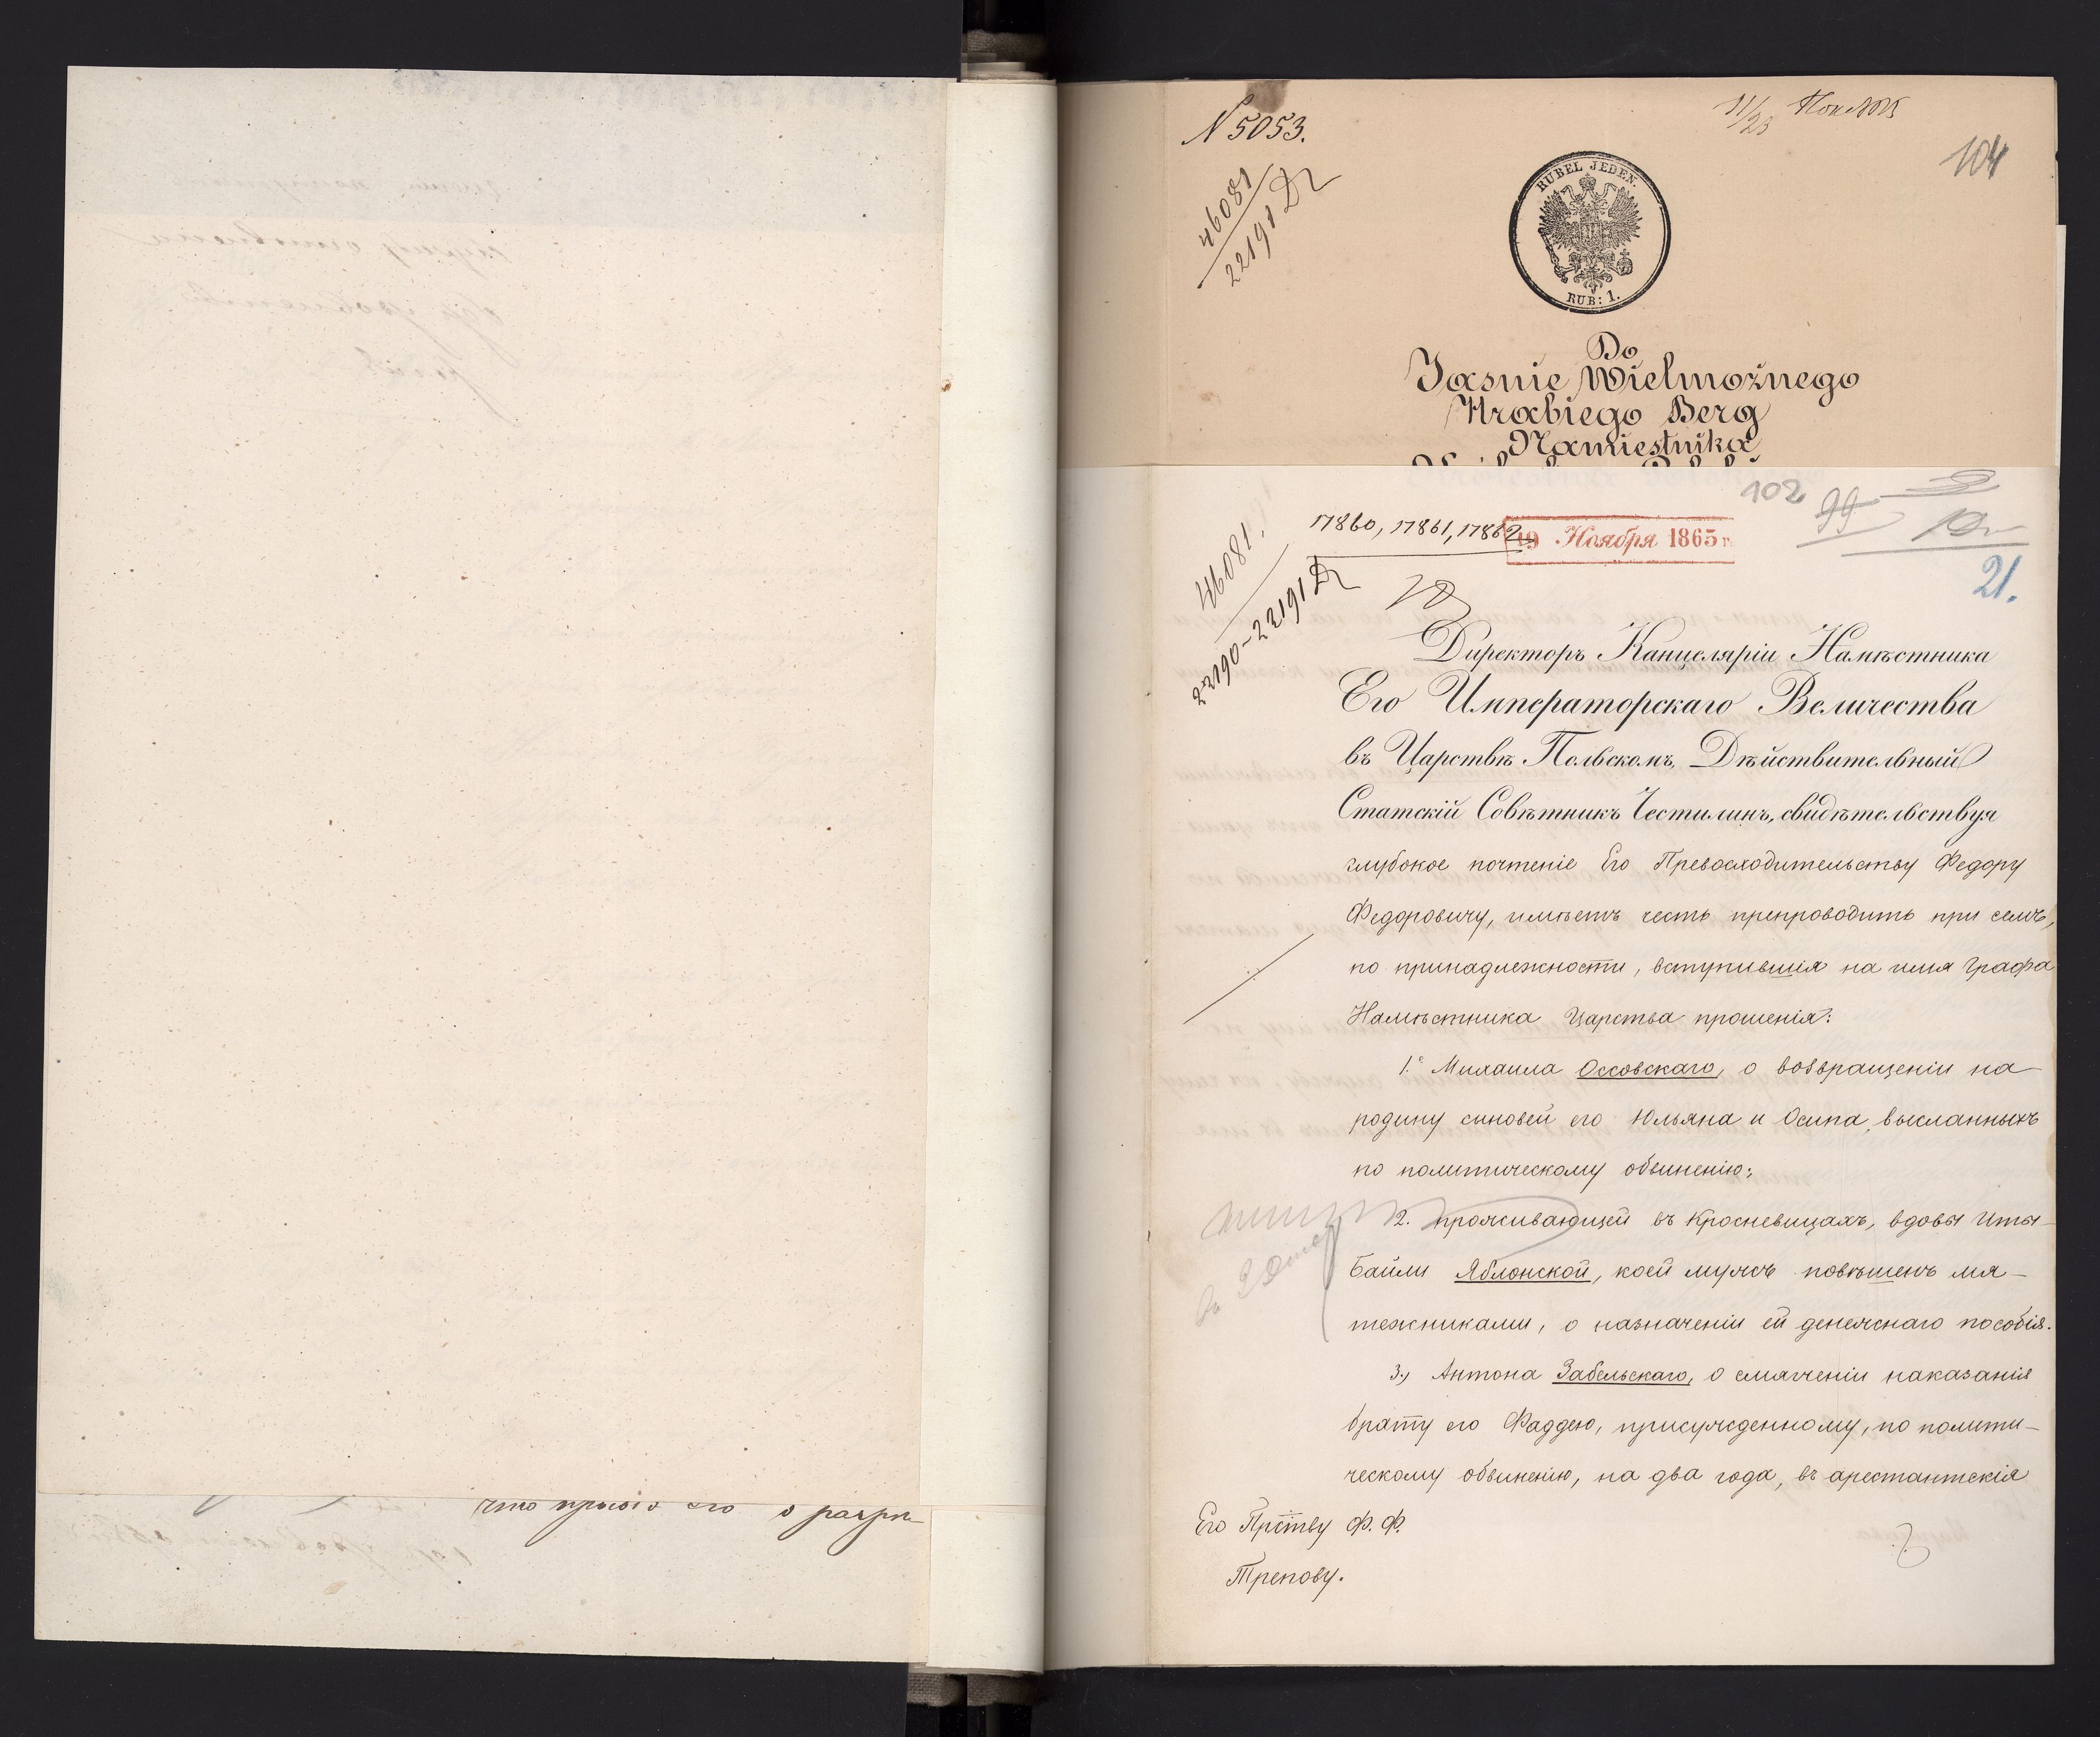 что
N 5053.
46081
22191
11/23
104
RUBEL JEDEN.
RUB: 1.
Do
Jasnie Wielmożnego
Hrabiego Berg
Namiestnika
102
99
17860, 17861, 17862
19 Ноября 1865 г.
46081.
22190-22191
21.
Директоръ Канцеляріи Намѣстника
Его Императорскаго Величества
въ Царствѣ Польскомъ, Дѣйствительный
Статскій Совѣтникъ Честилинъ, свидѣтельствуя
глубокое почтеніе Его Превосходительству Федору
Федоровичу, имѣетъ честь препроводить при семъ,
по принадлежности, вступившія на имя Графа
Намѣстника Царства прошенія:
1. Михаила Оссовскаго, о возвращеніи на
родину сыновей его Юльяна и Осипа, высланныхъ
по политическому обвиненію;
2. проживающей въ Кросневицахъ, вдовы Иты-
Байли Яблонской, коей мужъ повѣшенъ мя-
тежниками, о назначеніи ей денежнаго пособія.
3, Антона Забельскаго, о смягченіи наказанія
брату его Фаддею, присужденному, по полити-
ческому обвиненію, на два года, въ арестантскія
Его Прству Ф. Ф.
Трепову.